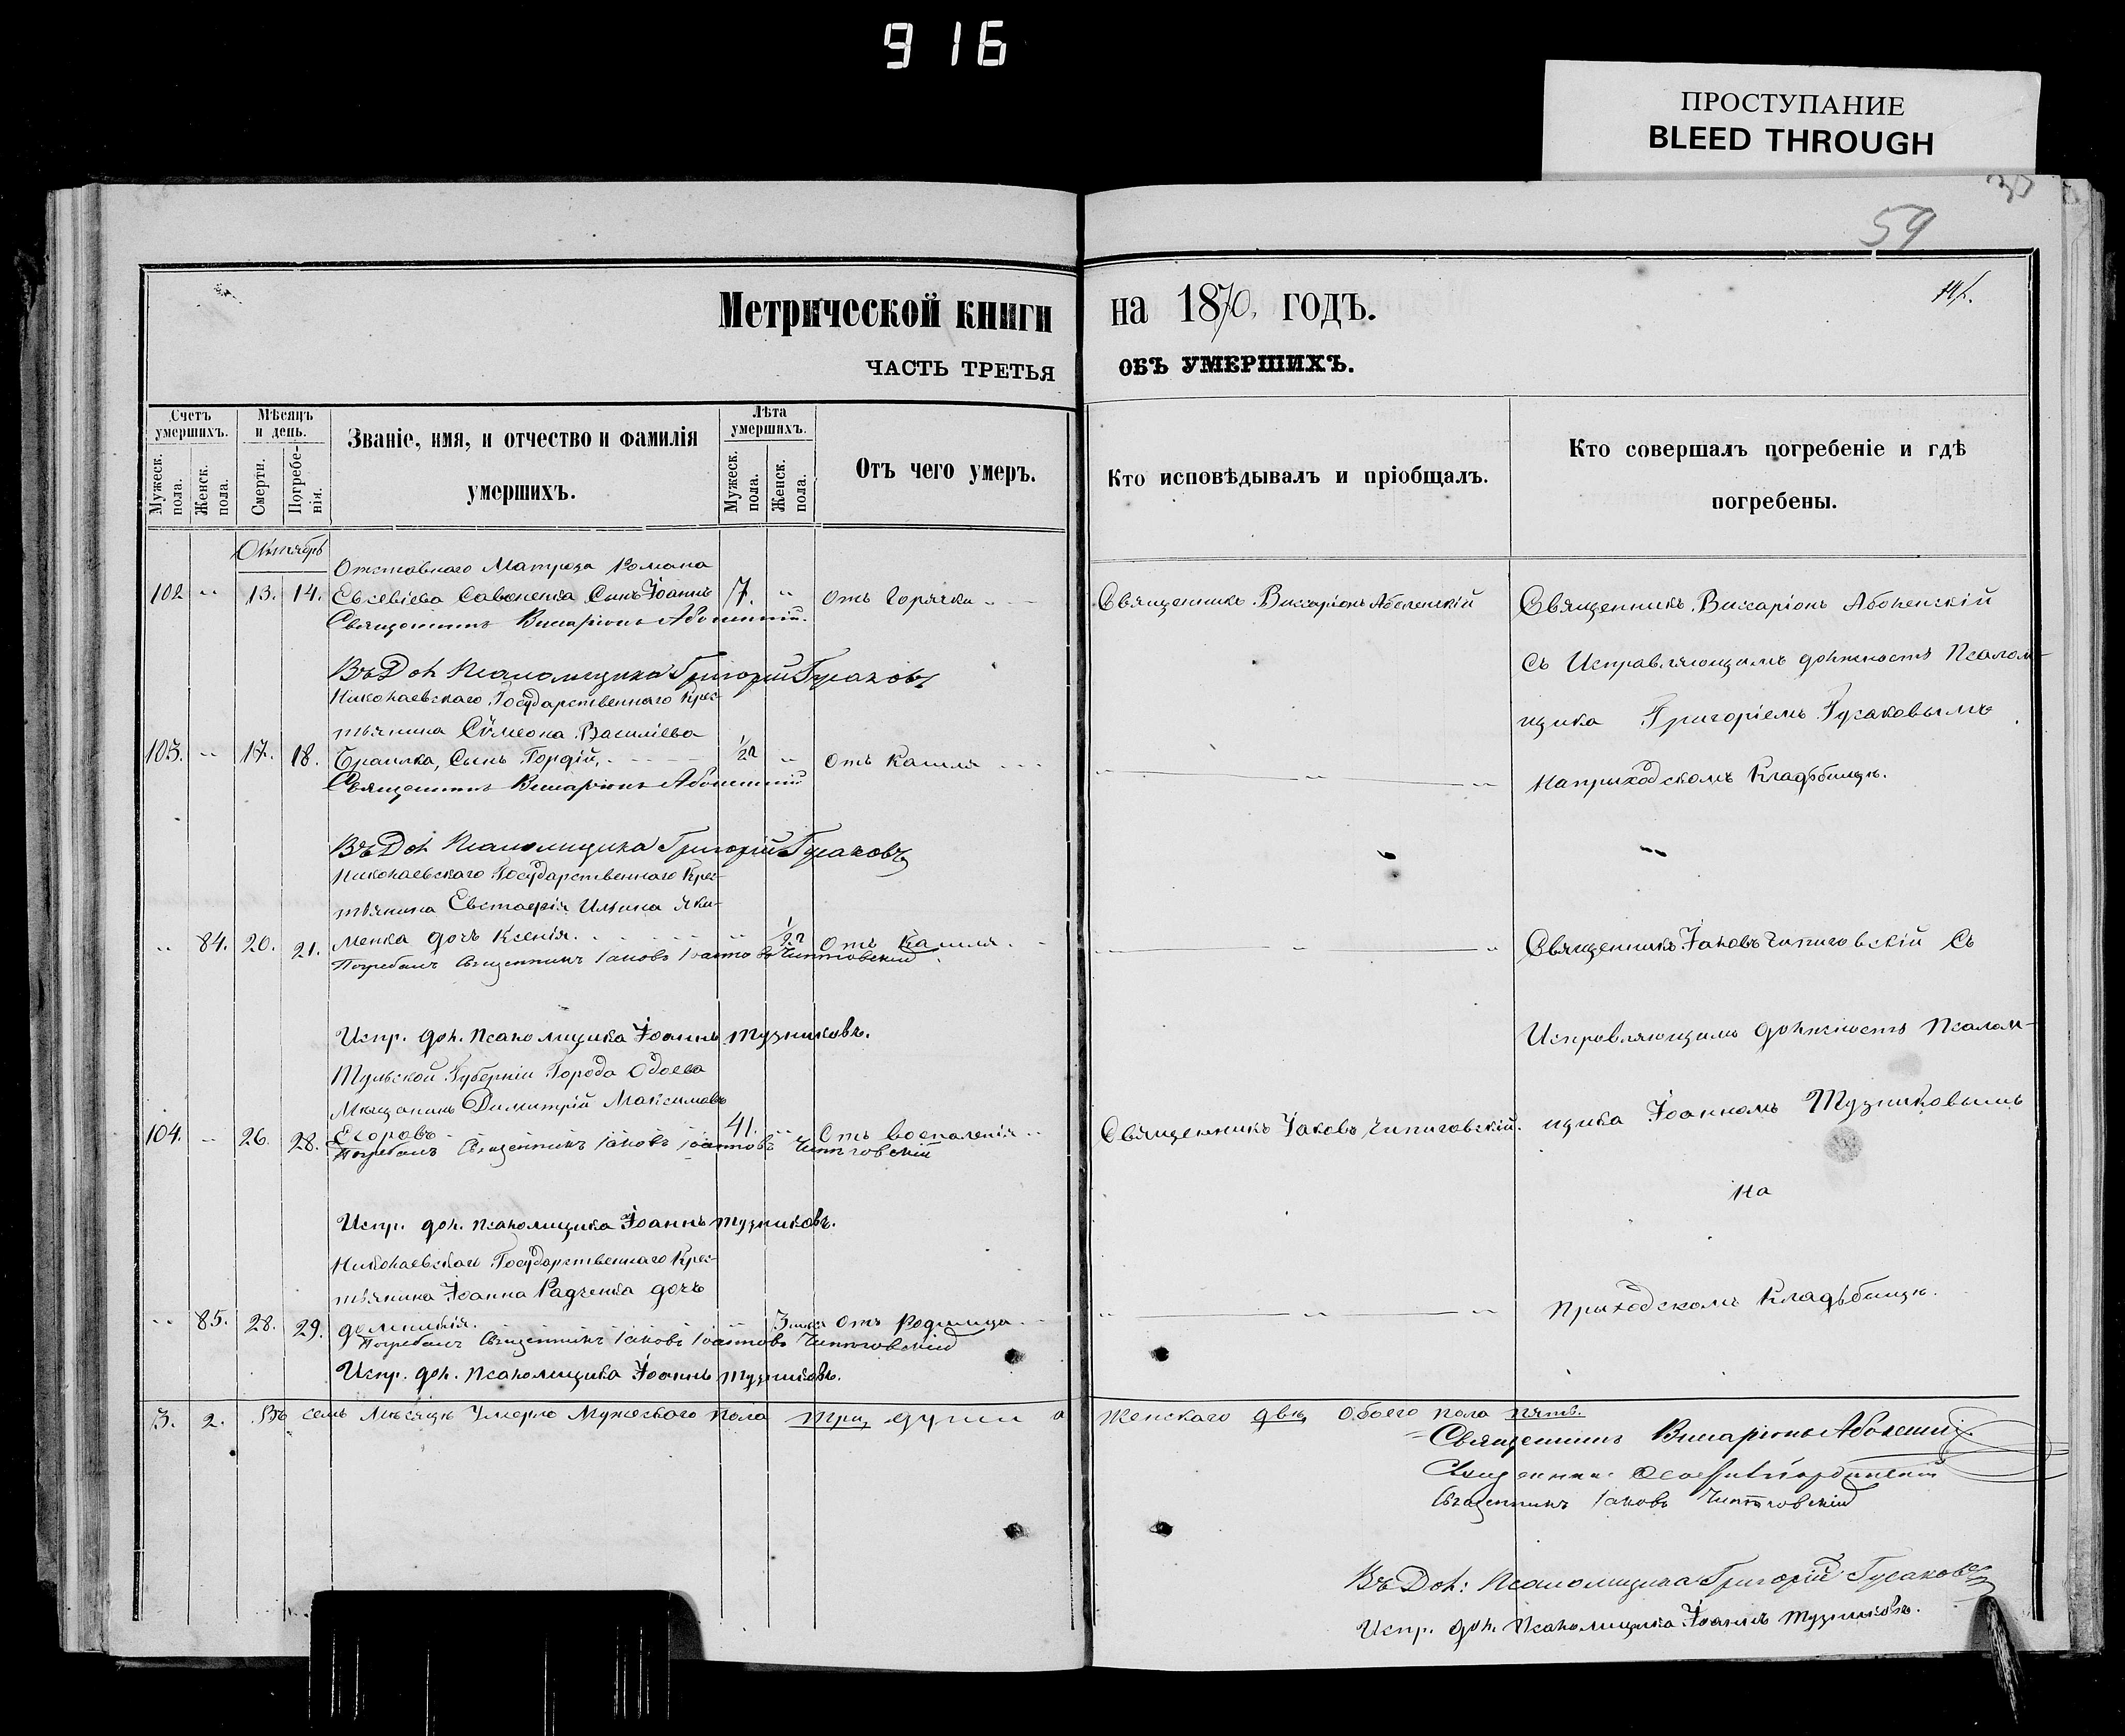 916
ПРОСТУПАНИЕ
BLEED THROUGH
59
Метрической книги на 1870, годъ.
ЧАСТЬ ТРЕТЬЯ ОБЪ УМЕРШИХЪ.
Счетъ умершихъ.
Мужеск. пола.
Женск. пола.
Мѣсяцъ и день.
Смерти.
Погребенія.
Званіе, имя, и отчество и фамилія умершихъ.
Лѣта умершихъ.
Мужеск. пола.
Женск. пола.
Отъ чего умеръ.
Кто исповѣдывалъ и пріобщалъ.
Кто совершалъ погребеніе и гдѣ погребены.
Октябрь
Отставнаго Матроза Романа
102 " 13. 14. Евсевіева Савененка Сынъ Іоаннъ 7. " отъ Горячки
Священникъ Виссаріонъ Аболенскій
Священникъ Виссаріонъ Аболенскій
Священникъ Виссаріонъ Аболенскій.
Въ Дол Псаломщика Григорій Гусаковъ
Съ Исправляющимъ должность Псалом-
щика Григоріемъ Гусаковымъ
На приходскомъ Кладъбищѣ.
Николаевскаго Государственнаго Крес-
тьянина Сѵмеона Василіева
103. " 17. 18. Сынъ Гордій, 1/2 " отъ Кашля
Священникъ Виссаріонъ Аболенскій
Въ Дол Псаломщика Григорій Гусаковъ
Николаевскаго Государственнаго Крес-
тьянина Евстафія Ильина Яки-
" 84. 20. 21. менка дочь Ксенія. " 1/2 Отъ Кашля.
Погребалъ Священникъ Іаковъ Чипиговскій
Священникъ Іаковъ Чипиговскій Съ
Испр. дол. Псаломщика Іоаннъ Тузниковъ.
Исправляющимъ должность Псалом-
щика Іоанномъ Тузниковымъ
на
приходскомъ Кладъбищѣ.
Тульской Губерніи Города Одоева
Мѣщанинъ Димитрій Максимовъ
104. " 26. 28. Егоровъ 41. " Отъ воспаленія
Священникъ Іаковъ Чипиговскій.
Погребалъ Священникъ Іаковъ Чипиговскій
Испр. дол. псаломщика Іоаннъ Тузниковъ.
Николаевскаго Государственнаго Крес-
тьянина Іоанна Радченка дочь
" 85. 28. 29. " Отъ Родимца
Погребалъ Священникъ Іаковъ Чипиговскій
Испр. дол. псаломщика Іоаннъ Тузниковъ.
3. 2. Въ семъ Мѣсяцѣ Умерло Мужескаго пола три души а Женскаго двѣ Обоего пола пять.
Священникъ Виссаріонъ Аболенскій.
Священникъ
Священникъ Іаковъ Чипиговскій
Въ Дол: Псаломщика Григорій Гусаковъ
Испр. дол. Псаломщика Іоаннъ Тузниковъ.